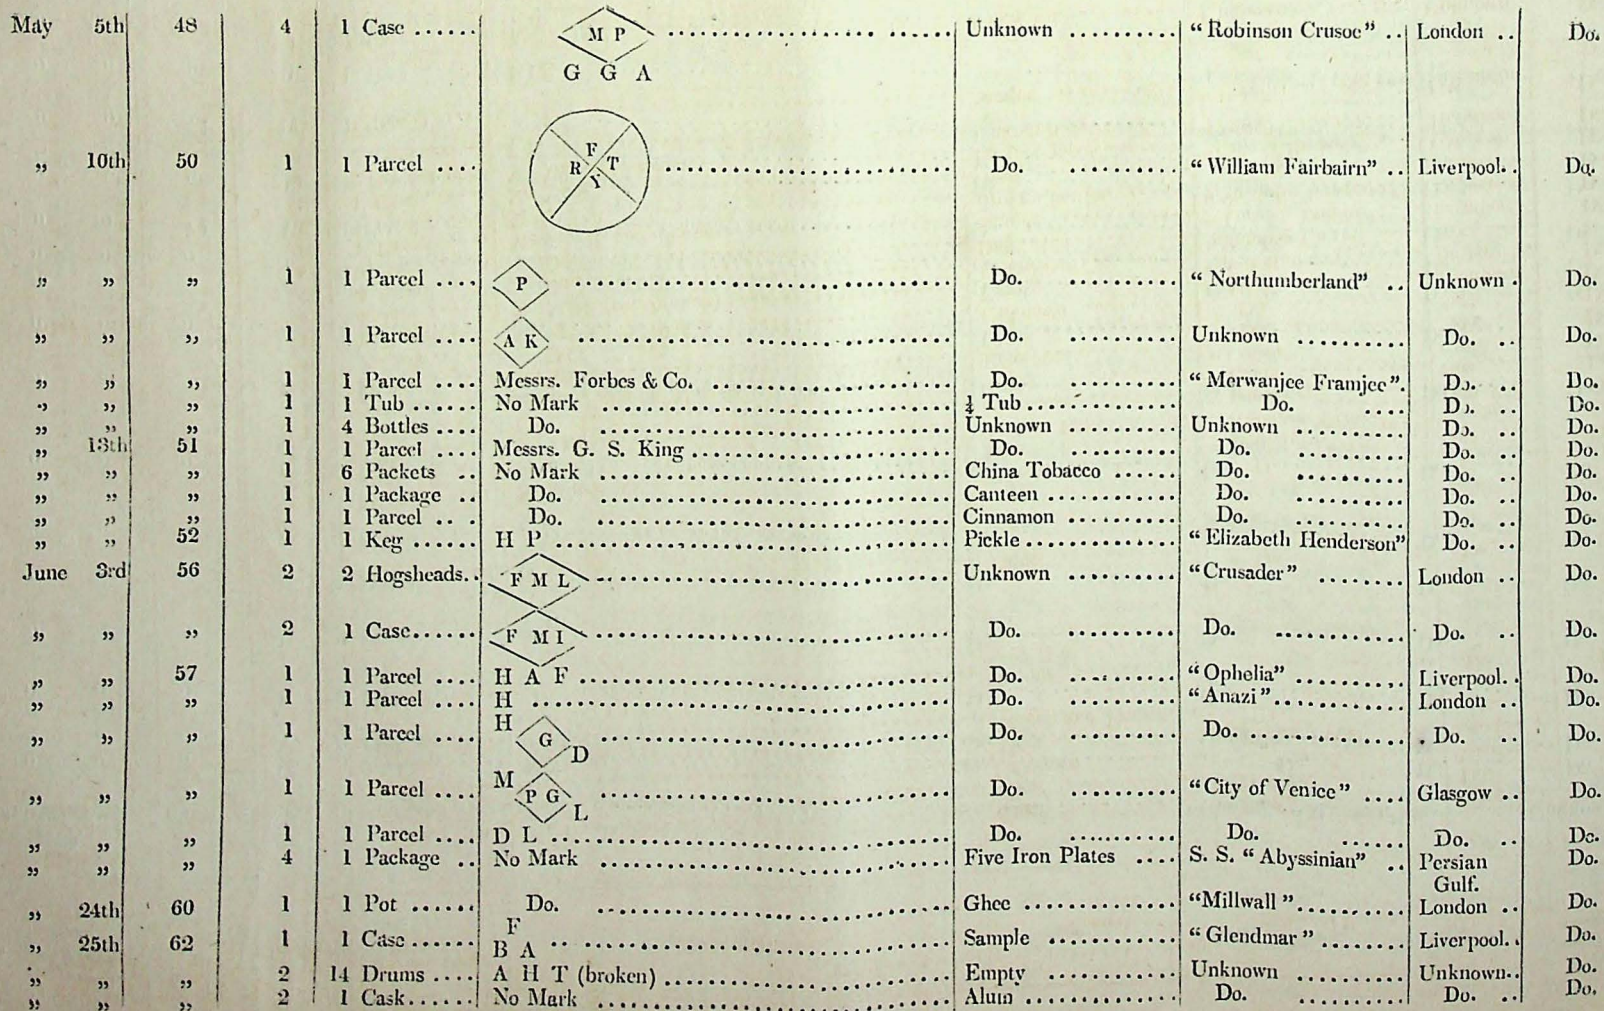 May 5th 48 4 1 Case ...... M P ...... Unknown .......... “Robinson Crusoe” .. London .. Do.
G G A
„ 10th 50 1 1 Parcel .... F R T Y ...... Do. .......... “William Fairbairn” .. Liverpool.. Do.
„ „ „ 1 1 Parcel .... P ...... Do. .......... “Northumberland” .. Unknown . Do.
„ „ „ 1 1 Parcel .... A K ...... Do. .......... Unknown .......... Do. .. Do.
„ „ „ 1 1 Parcel .... Messrs. Forbes & Co. ...... Do. .......... “Merwanjee Framjee”. Do. .. Do.
„ „ „ 1 1 Tub ...... No Mark ...... ¼ Tub .......... Do. .... Do. .. Do.
„ „ „ 1 4 Bottles .... Do. ...... Unknown .......... Unknown .......... Do. .. Do.
„ 13th 51 1 1 Parcel .... Messrs. G. S. King ...... Do. .......... Do. .......... Do. .. Do.
„ „ „ 1 6 Packets .. No Mark ...... China Tobacco ...... Do. .......... Do. .. Do.
„ „ „ 1 1 Package .. Do. ...... Canteen .......... Do. .......... Do. .. Do.
„ „ „ 1 1 Parcel .... Do. ...... Cinnamon .......... Do. .......... Do. .. Do.
„ „ 52 1 1 Keg ...... H P ...... Pickle .......... “Elizabeth Henderson” Do. .. Do.
June 3rd 56 2 2 Hogsheads.. F M L ...... Unknown .......... “Crusader” ........ London .. Do.
„ „ „ 2 1 Case...... F M I ...... Do. .......... Do. ............ Do. .. Do.
„ „ 57 1 1 Parcel .... H A F ...... Do. .......... “Ophelia” .......... Liverpool.. Do.
„ „ „ 1 1 Parcel .... H ...... Do. .......... “Anazi” .......... London .. Do.
„ „ „ 1 1 Parcel .... H G D ...... Do. .......... Do. .......... Do. .. Do.
„ „ „ 1 1 Parcel .... M P G L ...... Do. .......... “City of Venice” .... Glasgow .. Do.
„ „ „ 1 1 Parcel .... D L ...... Do. .......... Do. ...... Do. .. Do.
„ „ „ 4 1 Package .. No Mark ...... Five Iron Plates .... S. S. “Abyssinian” .. Persian Do.
Gulf.
„ 24th 60 1 1 Pot ...... Do. ...... Ghee .......... “Millwall” .......... London .. Do.
F
„ 25th 62 1 1 Case ...... B A ...... Sample .......... “Glendmar” ........ Liverpool.. Do.
„ „ „ 2 14 Drums .... A H T (broken) ...... Empty .......... Unknown .......... Unknown.. Do.
„ „ „ 2 1 Cask...... No Mark ...... Alum .......... Do. .......... Do. .. Do.